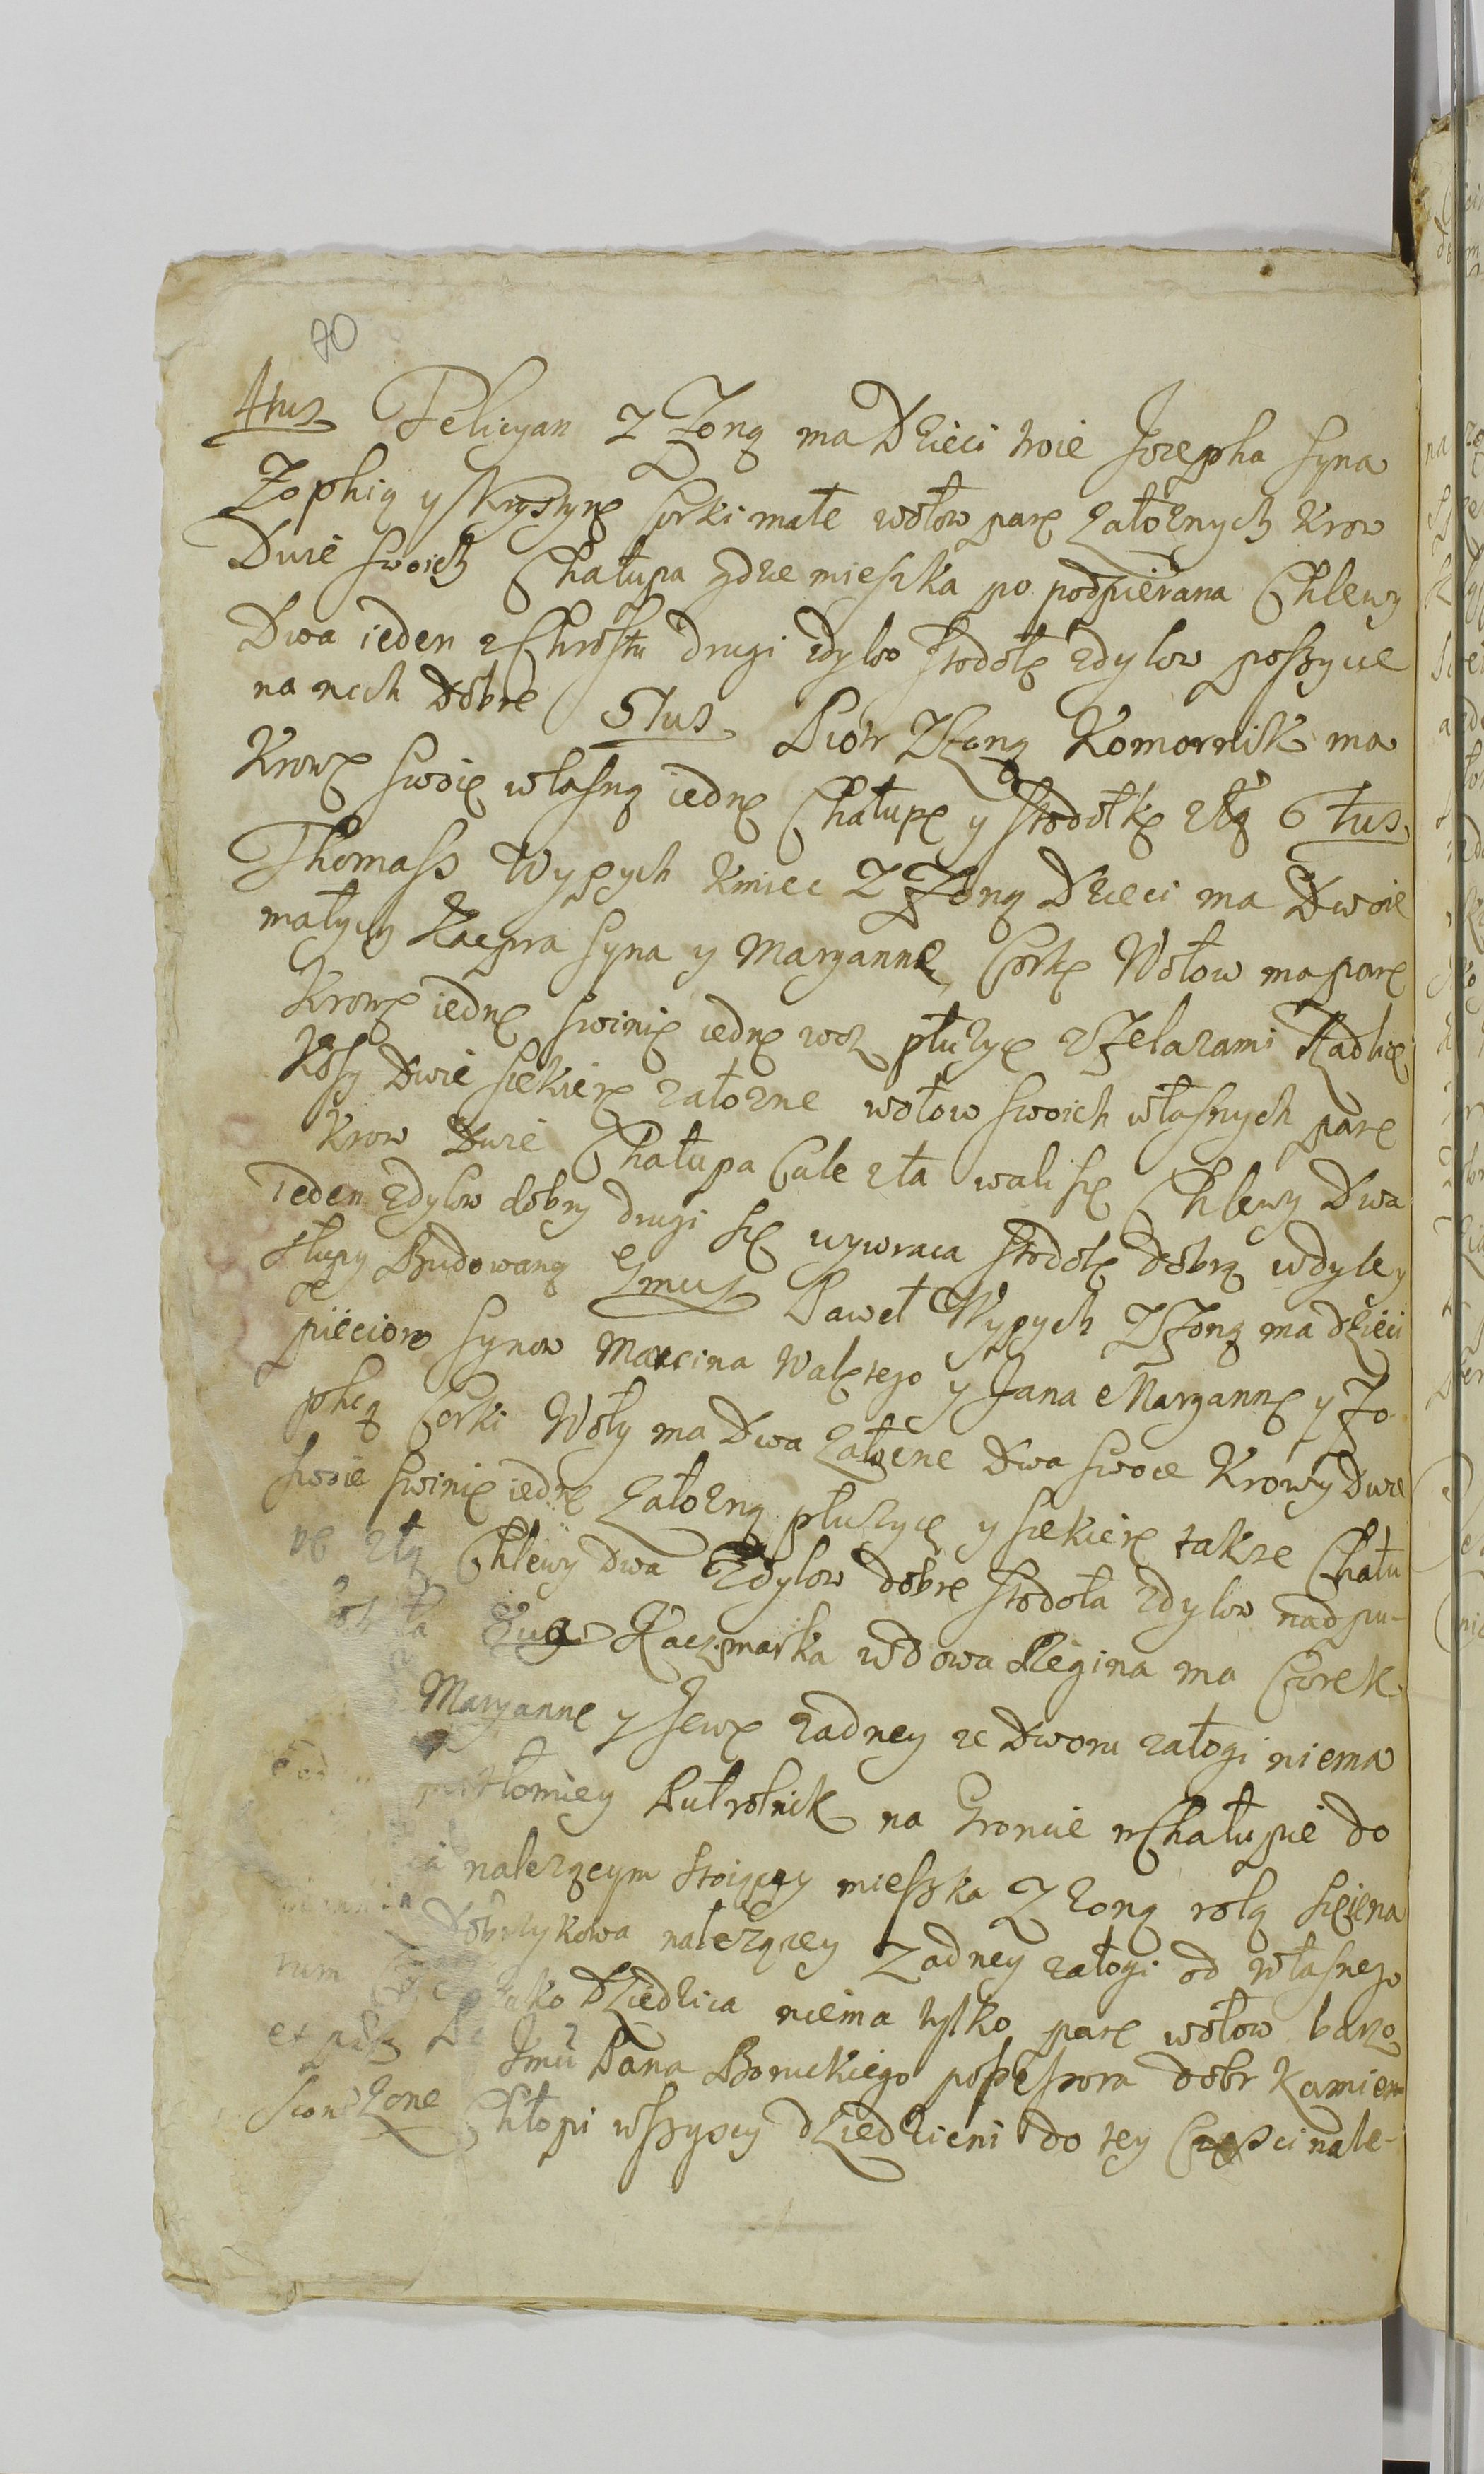 70
4tus Felicyan Z Zoną ma Dzieci troie Jozepha syna
Zophią y Krystynę Corki małe wołow parę załoznych Krow
Dwie swoich Chałupa gdzie mieszka po podpierana Chlewy
Dwa ieden z Chrostu drugi zdylow stodołę zdylow poszycie
na nich dobre 5tus Piotr Z Zoną Komornik ma
Krowę swoię własną iednę Chałupę y stodołkę złą 6tus
Thomass Wypych Kmiec Z Zoną Dzieci ma Dwoie
małych Kacpra syna y Maryannę Corkę Wołow ma parę
Krowę iednę swinię iednę woz płuzyę z Zelazami Radlic
Kosy Dwie siekierę załozne wołow swoich własnych parę
Krow Dwie Chałupa Cale zła wali się Chlewy Dwa
ieden zdylow dobry drugi się wywraca stodołę dobrą wdyle y
słupy Budowaną 7mus Paweł Wypych Z Zoną ma dzieci
pięcioro synow Marcina Walętego y Jana Maryannę y Zo
phią Corki Woły ma Dwa załozne Dwa swoie Krowy Dwie
swoie swinię iednę załozną płuzycę y siekierę takze Chału
pę złą Chlewy Dwa Zdylow dobre stodoła zdylow nadpu-
Kaczmarka wdowa Regina ma Corek
Maryannę y Jewę zadney ze Dworu załogi niema
Pułrolnik na Groncie w Chałupie do
nalezącym stoiącey mieszka Z zoną rolą
nalezącey Zadney załogi od własnego
Dziedzica niema tylko parę wołow
et Jmci Pana Boruckiego possessora dobr Kamien
Chłopi wszyscy dziedzicni do tey Częsci nale-